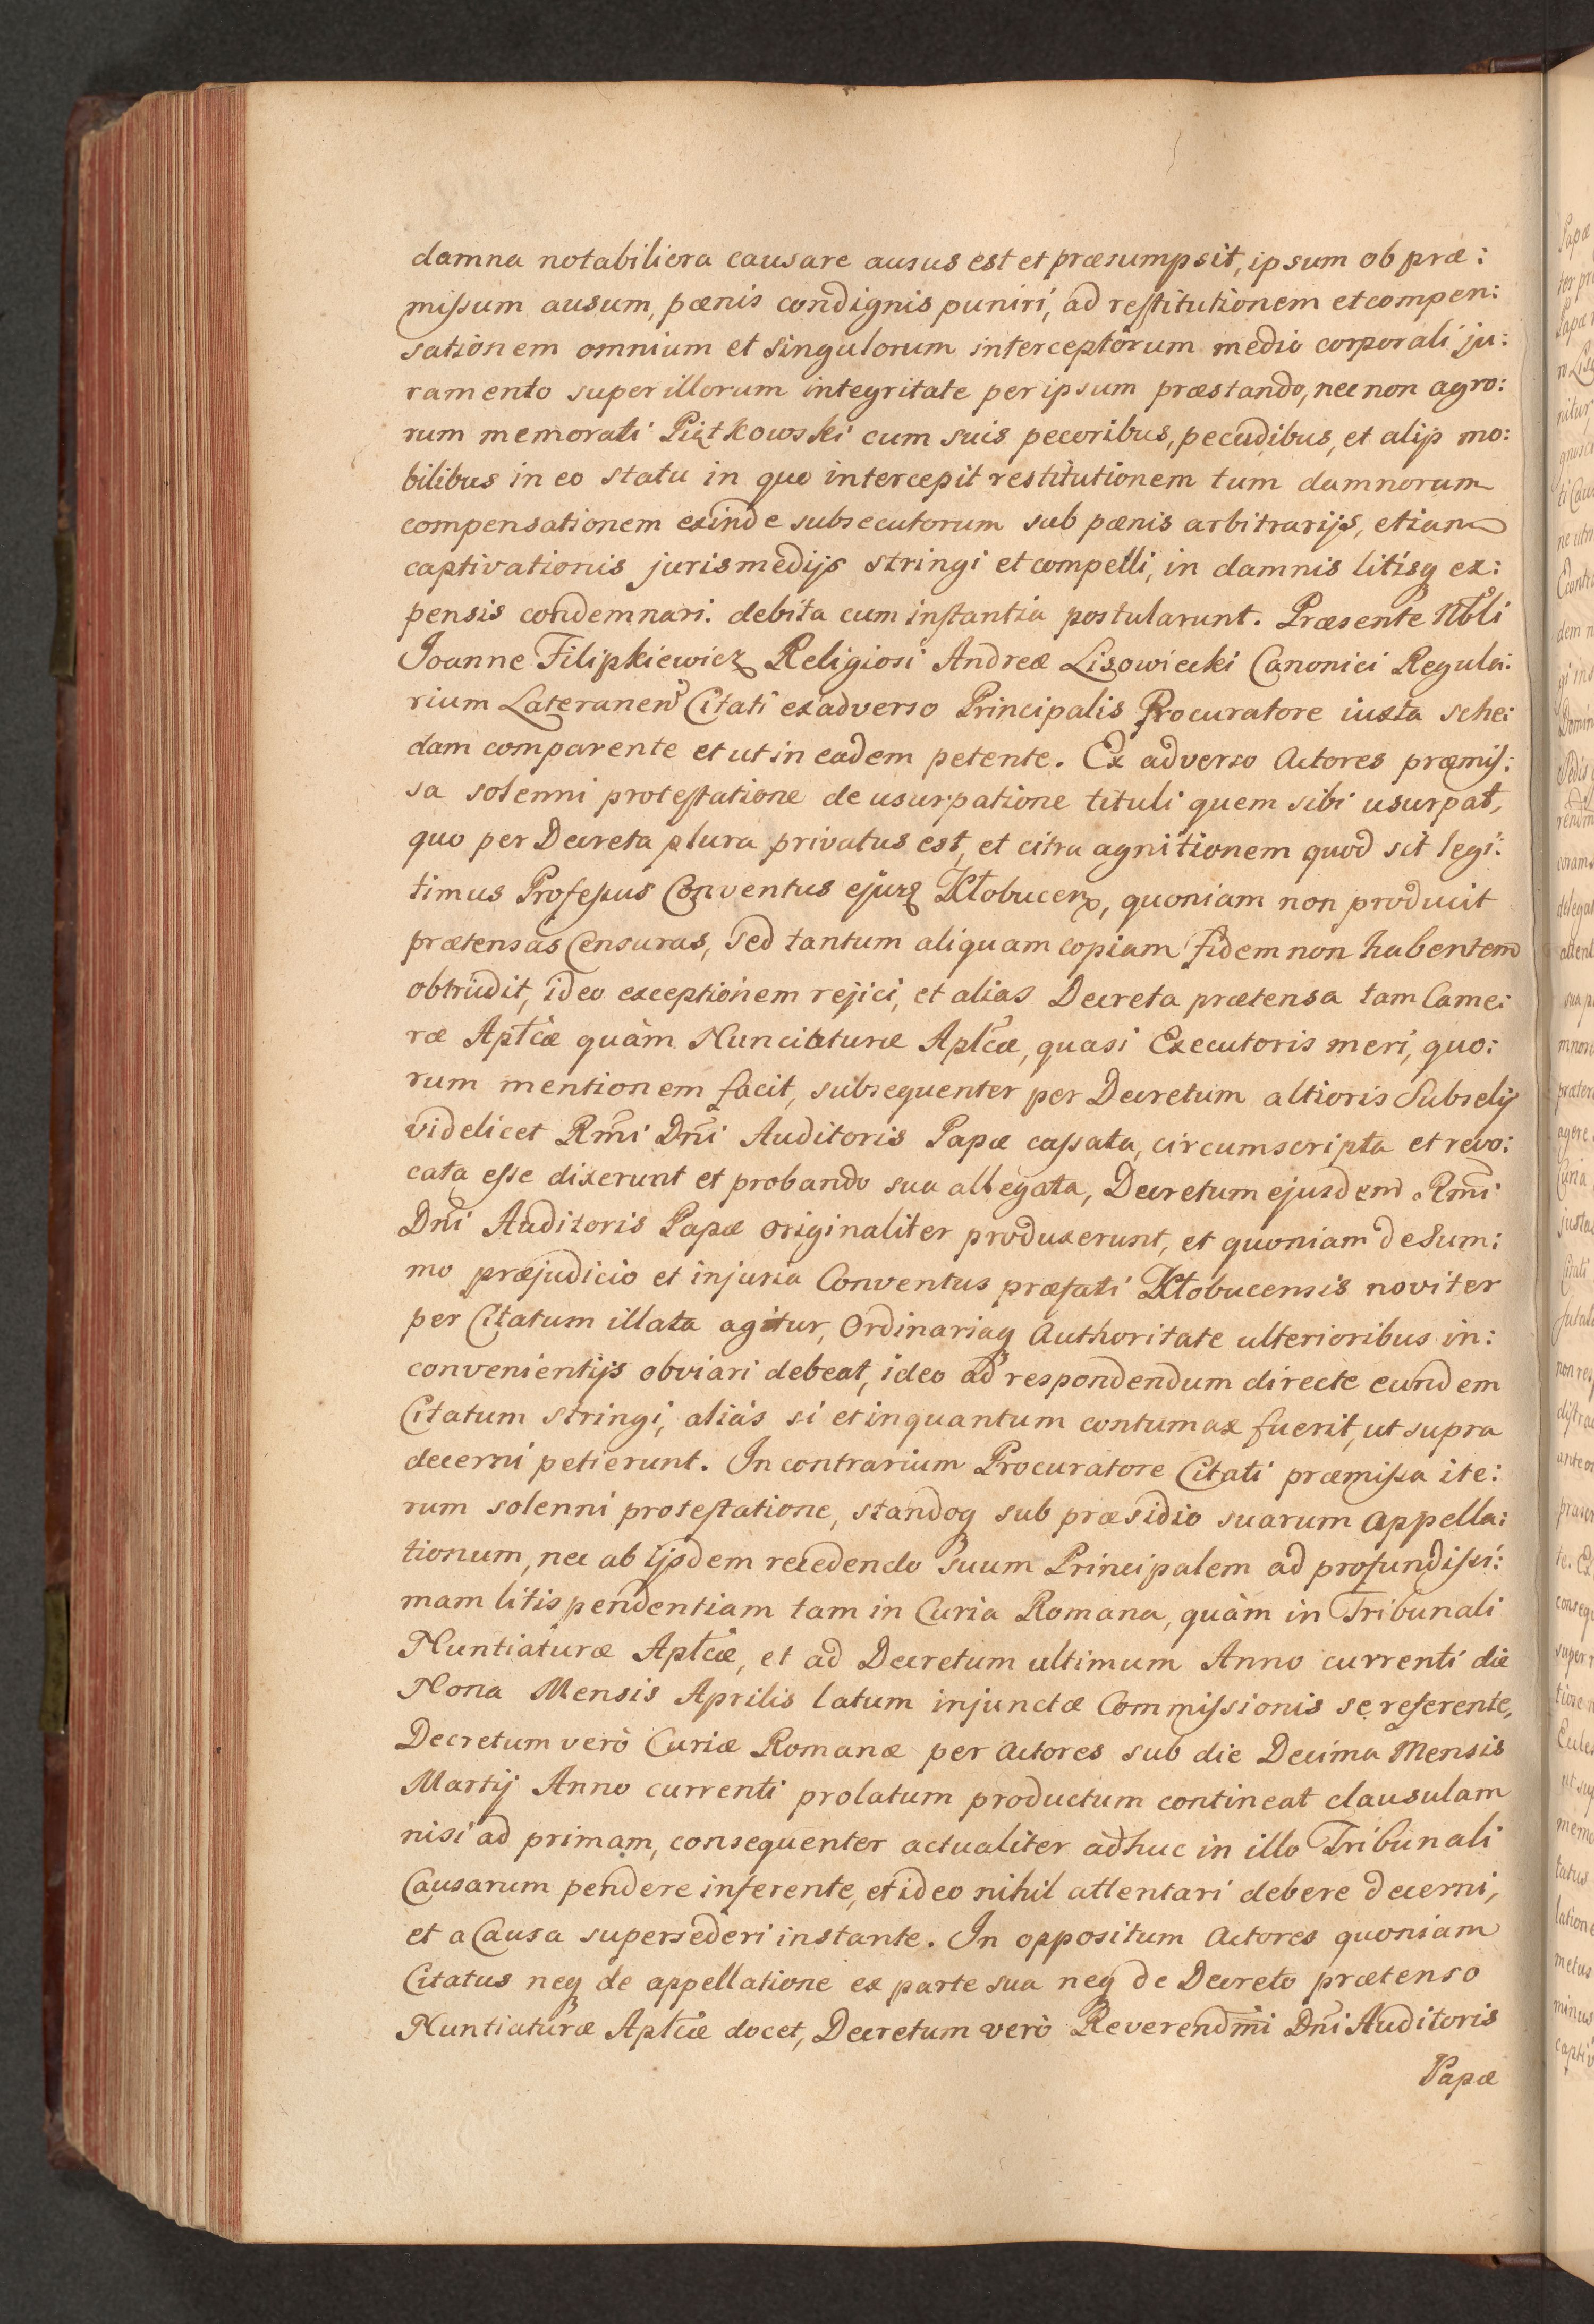 damna notabiliora causare ausus est et præsumpsit, ipsum ob præ:
missum ausum, pænis condignis puniri, ad restitutionem et compen:
sationem omnium et singulorum interceptorum medio corporali ju:
ramento super illorum integritate per ipsum præstando, nec non agro:
rum memorati Piątkowski cum suis pecoribus, pecudibus, et alijs mo:
bilibus in eo statu in quo intercepit restitutionem tum damnorum
compensationem exinde subsecutorum sub pænis arbitrarijs, etiam
captivationis juris medijs stringi et compelli, in damnis litisq ex:
pensis condemnari. debita cum instantia postularunt. Præsente Nbli
Joanne Filipkiewicz Religiosi Andreæ Lisowiecki Canonici Regula:
rium Lateranen Citati ex adverso Principalis Procuratore iuxta sche:
dam comparente et ut in eadem petente. Ex adverso Actores præmis:
sa solenni protestatione de usurpatione tituli quem sibi usurpat,
quo per Decreta plura privatus est, et citra agnitionem quod sit legi:
timus Professus Conventus ejusd Kłobucen, quoniam non producit
prætensas Censuras, sed tantum aliquam copiam fidem non habentem
obtrudit, ideo exceptionem rejici, et alias Decreta prætensa tam Came:
ræ Aplcæ quàm Nunciaturæ Aplcæ, quasi Executoris meri, quo:
rum mentionem facit, subsequenter per Decretum altioris Subselij
videlicet Rmi Dni Auditoris Papæ cassata, circumscripta et revo:
cata esse dixerunt et probando sua allegata, Decretum ejusdem Rmi
Dni Auditoris Papæ originaliter produxerunt, et quoniam de Sum:
mo præjudicio et injuria Conventus præfati Kłobucensis noviter
per Citatum illata agitur, Ordinariaq Authoritate ulterioribus in:
convenientijs obviari debeat, ideo ad respondendum directe eundem
Citatum stringi, aliàs si et inquantum contumax fuerit, ut supra
decerni petierunt. In contrarium Procuratore Citati præmissa ite:
rum solenni protestatione, standoq sub præsidio suarum Appella:
tionum, nec ab ijsdem recedendo suum Principalem ad profundissi:
mam litis pendentiam tam in Curia Romana, quàm in Tribunali
Nuntiaturæ Aplcæ, et ad Decretum ultimum Anno currenti die
Nona Mensis Aprilis latum injunctæ Commissionis se referente,
Decretum verò Curiæ Romanæ per Actores sub die Decima Mensis
Martij Anno currenti prolatum productum contineat clausulam
nisi ad primam, consequenter actualiter adhuc in illo Tribunali
Causarum pendere inferente, et ideo nihil attentari debere decerni,
et a Causa supersederi instante. In oppositum Actores quoniam
Citatus neq de appellatione ex parte sua neq de Decreto prætenso
Nuntiaturæ Aplcæ docet, Decretum verò Reverendmi Dni Auditoris
Papæ